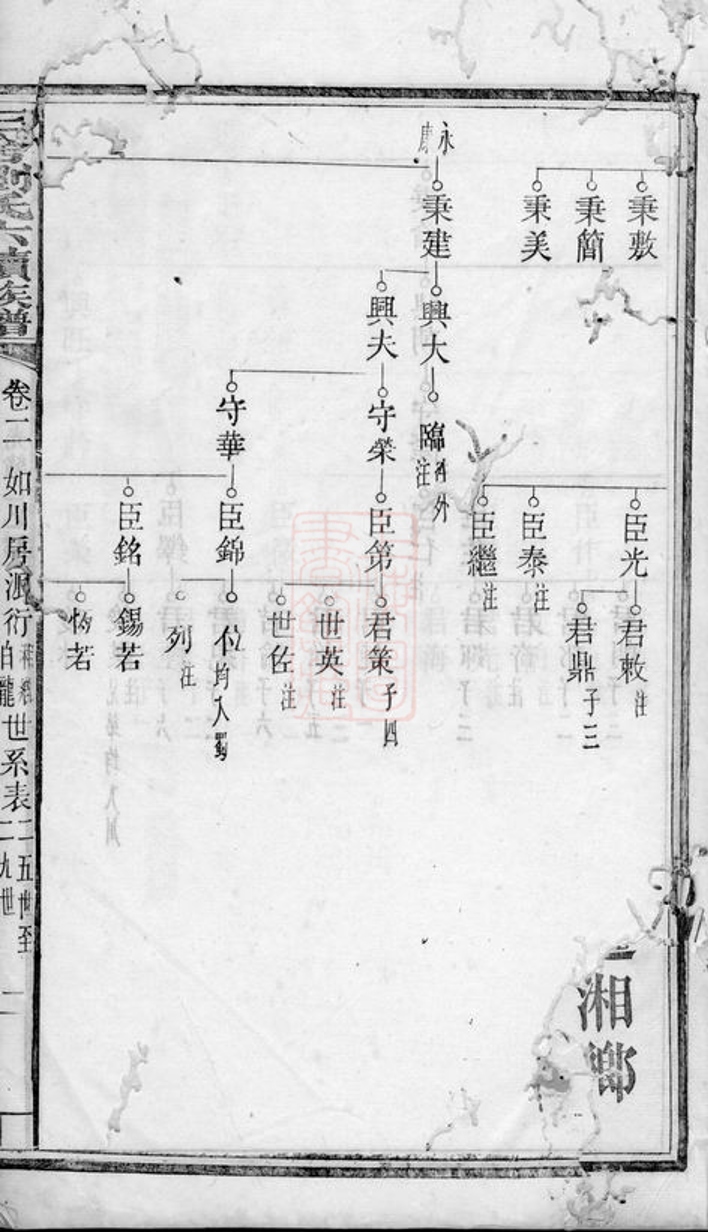 秉敷
秉簡
秉美
永康
秉建
興大
興夫
臨
外
注
守榮
守華
臣光
臣泰注
臣繼注
臣第
臣錦
臣銘
君敕注
君鼎子三
君策子四
世英注
世佐注
位均入蜀
列注
錫若
恂若
湘鄉
劉氏六續族譜
卷二
如川房派衍
伯龍
世系表
二五世至
二九世
二